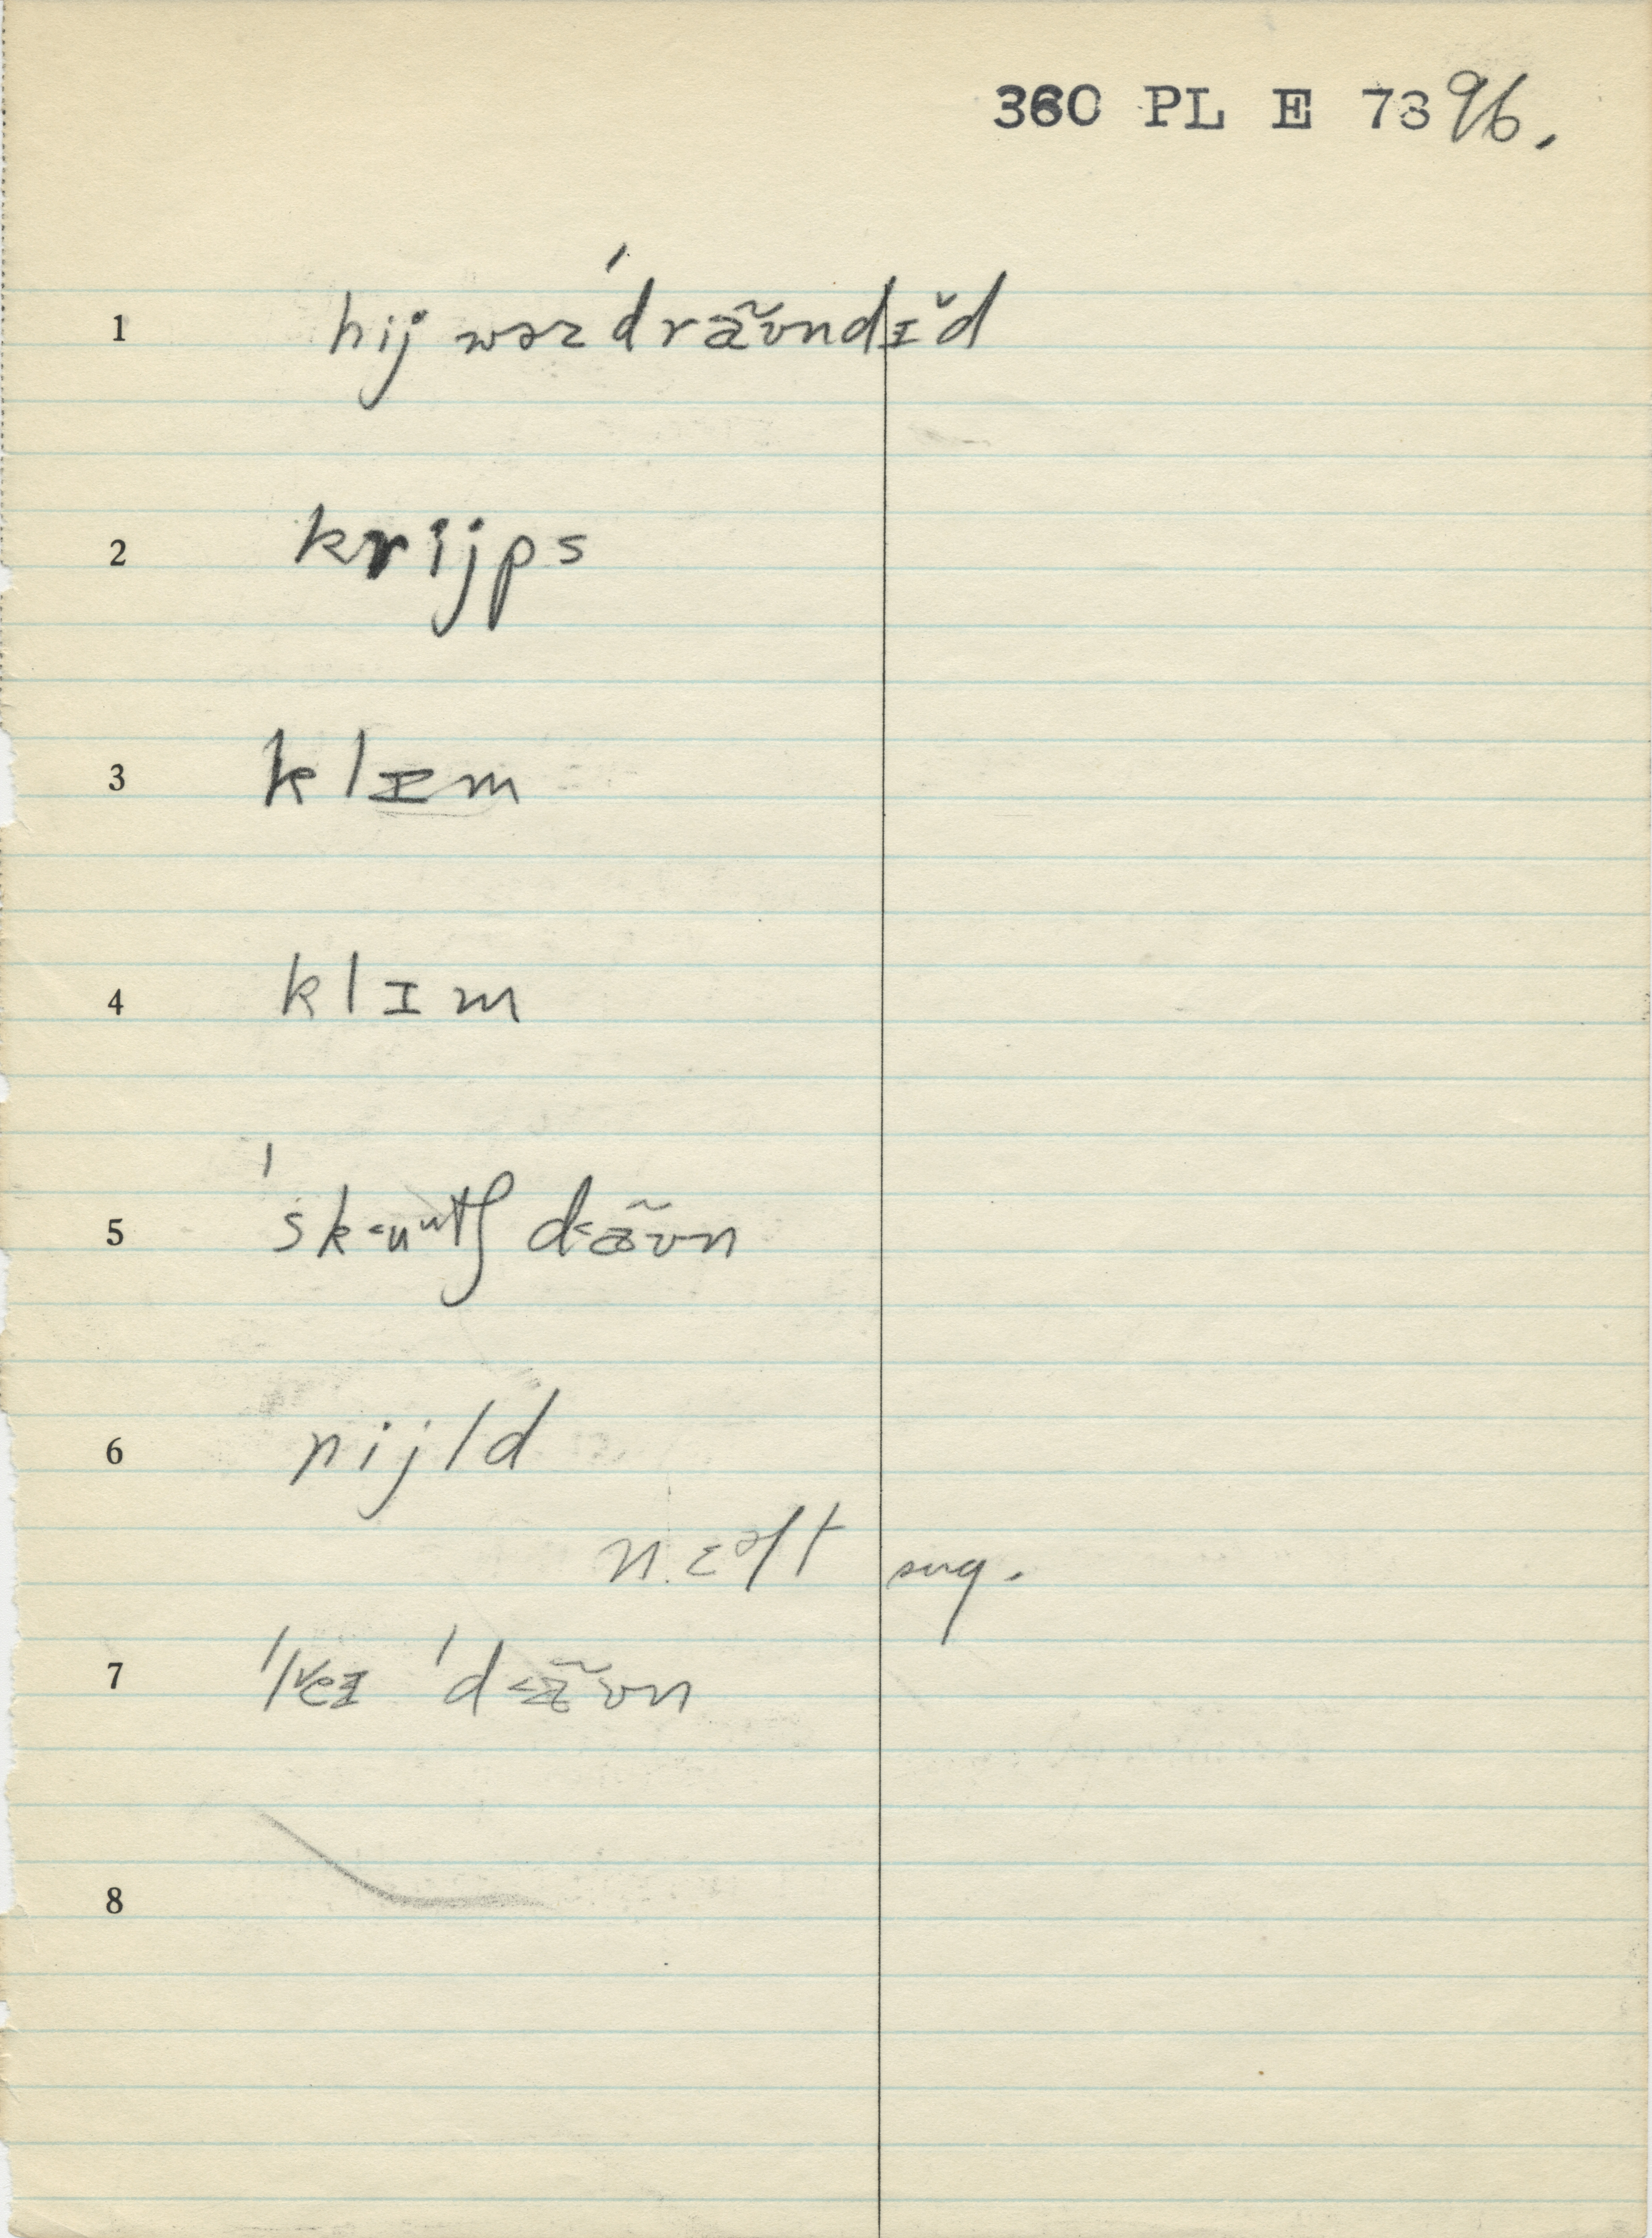 360 PL E 7396.
1 hij wəz ˈdræ̃ʊndɪ̆d
2 krijps
3 klɪm
4 klɪm
5 ˈsk˂uᵘtʃ d˂æ̃ʊn
6 nijld
nɛəlt sug.
7 ˈd˂æ̃ʊn
8